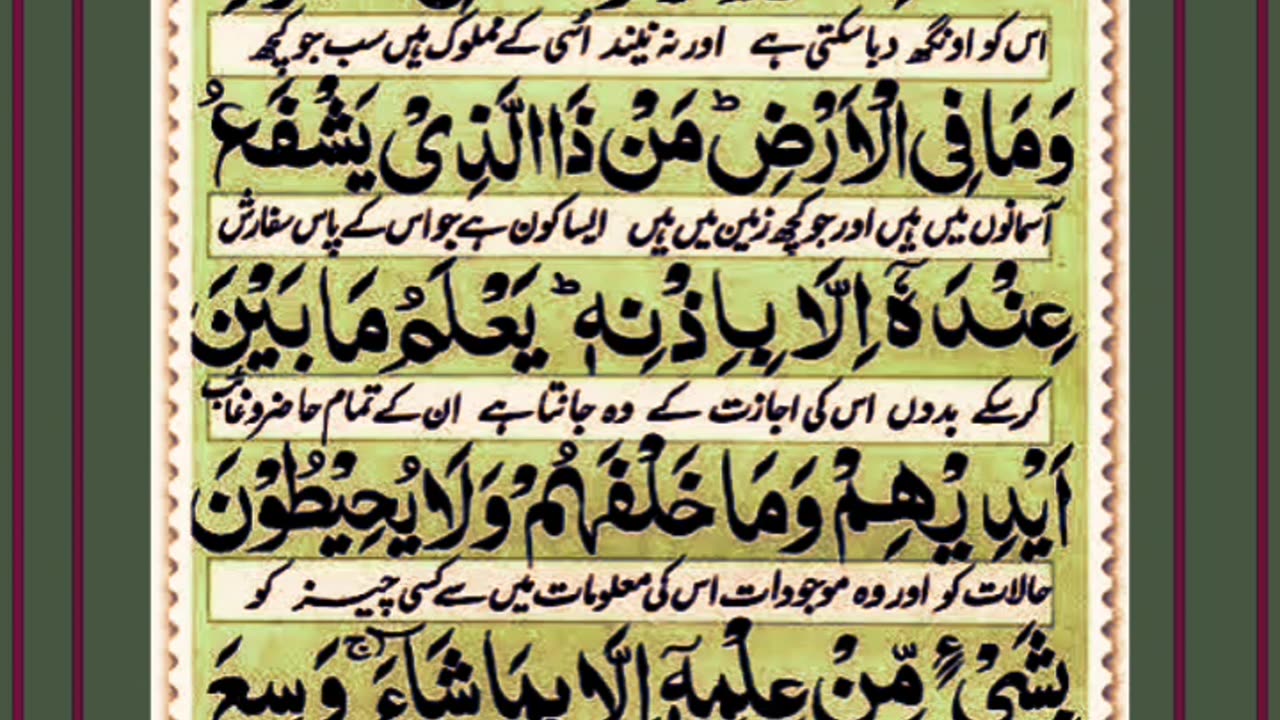 اس کو اونگھ دبا سکتی ہے اور نہ نیند اُسی کے مملوک ہیں سب جو کچھ
وَمَا فِی الْاَرْضِ ؕ مَنْ ذَا الَّذِیْ یَشْفَعُ
آسمانوں میں ہیں اور جو کچھ زمین میں ہیں ایسا کون ہے جو اس کے پاس سفارش
عِنْدَهٗۤ اِلَّا بِاِذْنِهٖ ؕ یَعْلَمُ مَا بَیْنَ
کرسکے بدوں اس کی اجازت کے وہ جانتا ہے ان کے تمام حاضر و غائب
اَیْدِیْهِمْ وَمَا خَلْفَهُمْ وَلَا یُحِیْطُوْنَ
حالات کو اور وہ موجودات اس کی معلومات میں سے کسی چیز کو
بِشَیْءٍ مِّنْ عِلْمِهٖۤ اِلَّا بِمَا شَآءَ ۚ وَسِعَ